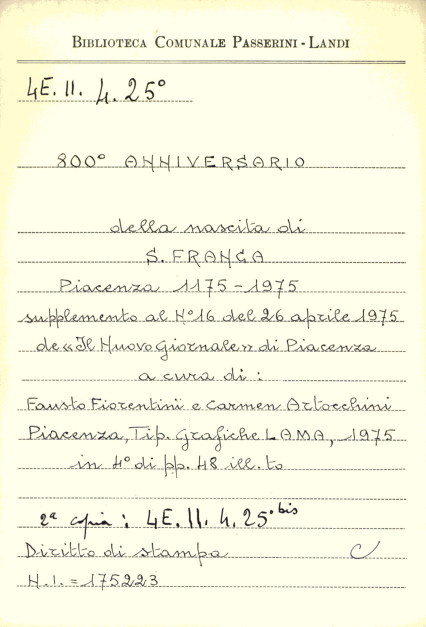 BIBLIOTECA COMUNALE PASSERINI - LANDI
4E.II. 4. 25°
800° ANNIVERSARIO
della nascita di
S. FRANCA
Piacenza 1175-1975
supplemento al N°16 del 26 aprile 1975
de «Il Nuovo Giornale» di Piacenza
a cura di:
Fausto Fiorentini e Carmen Artocchini
Piacenza, Tip. Grafiche LAMA, 1975
in 4° di pp. 48 ill.to
2ª copia: 4E.II.4.25° bis
Diritto di stampa C
N.I. = 175223